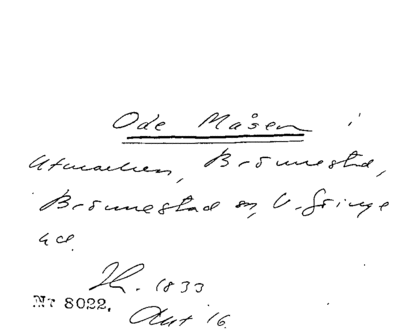 Ode Måsen i
Utmarken, Brönnestad,
Brönnestad sn, V. Göinge
hd.
Jh. 1833
Nr 8022.
Akt 16